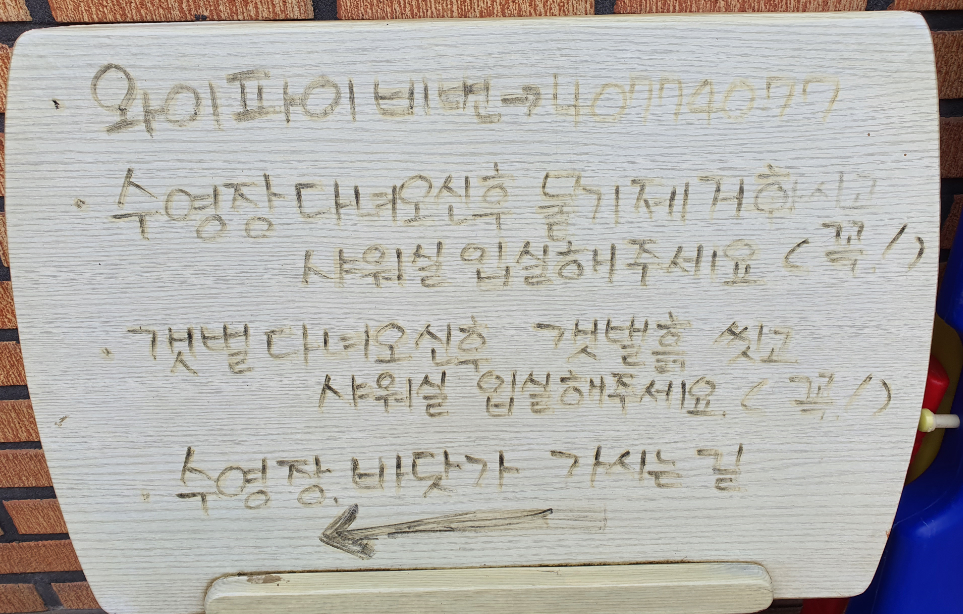 와이파이 비번→ 40774077
· 수영장 다녀오신후 물기제거하시고
샤워실 입실해주세요 (꼭!)
· 갯벌 다녀오신후 갯벌흙 씻고
샤워실 입실해주세요. (꼭!)
· 수영장. 바닷가 가시는 길
←